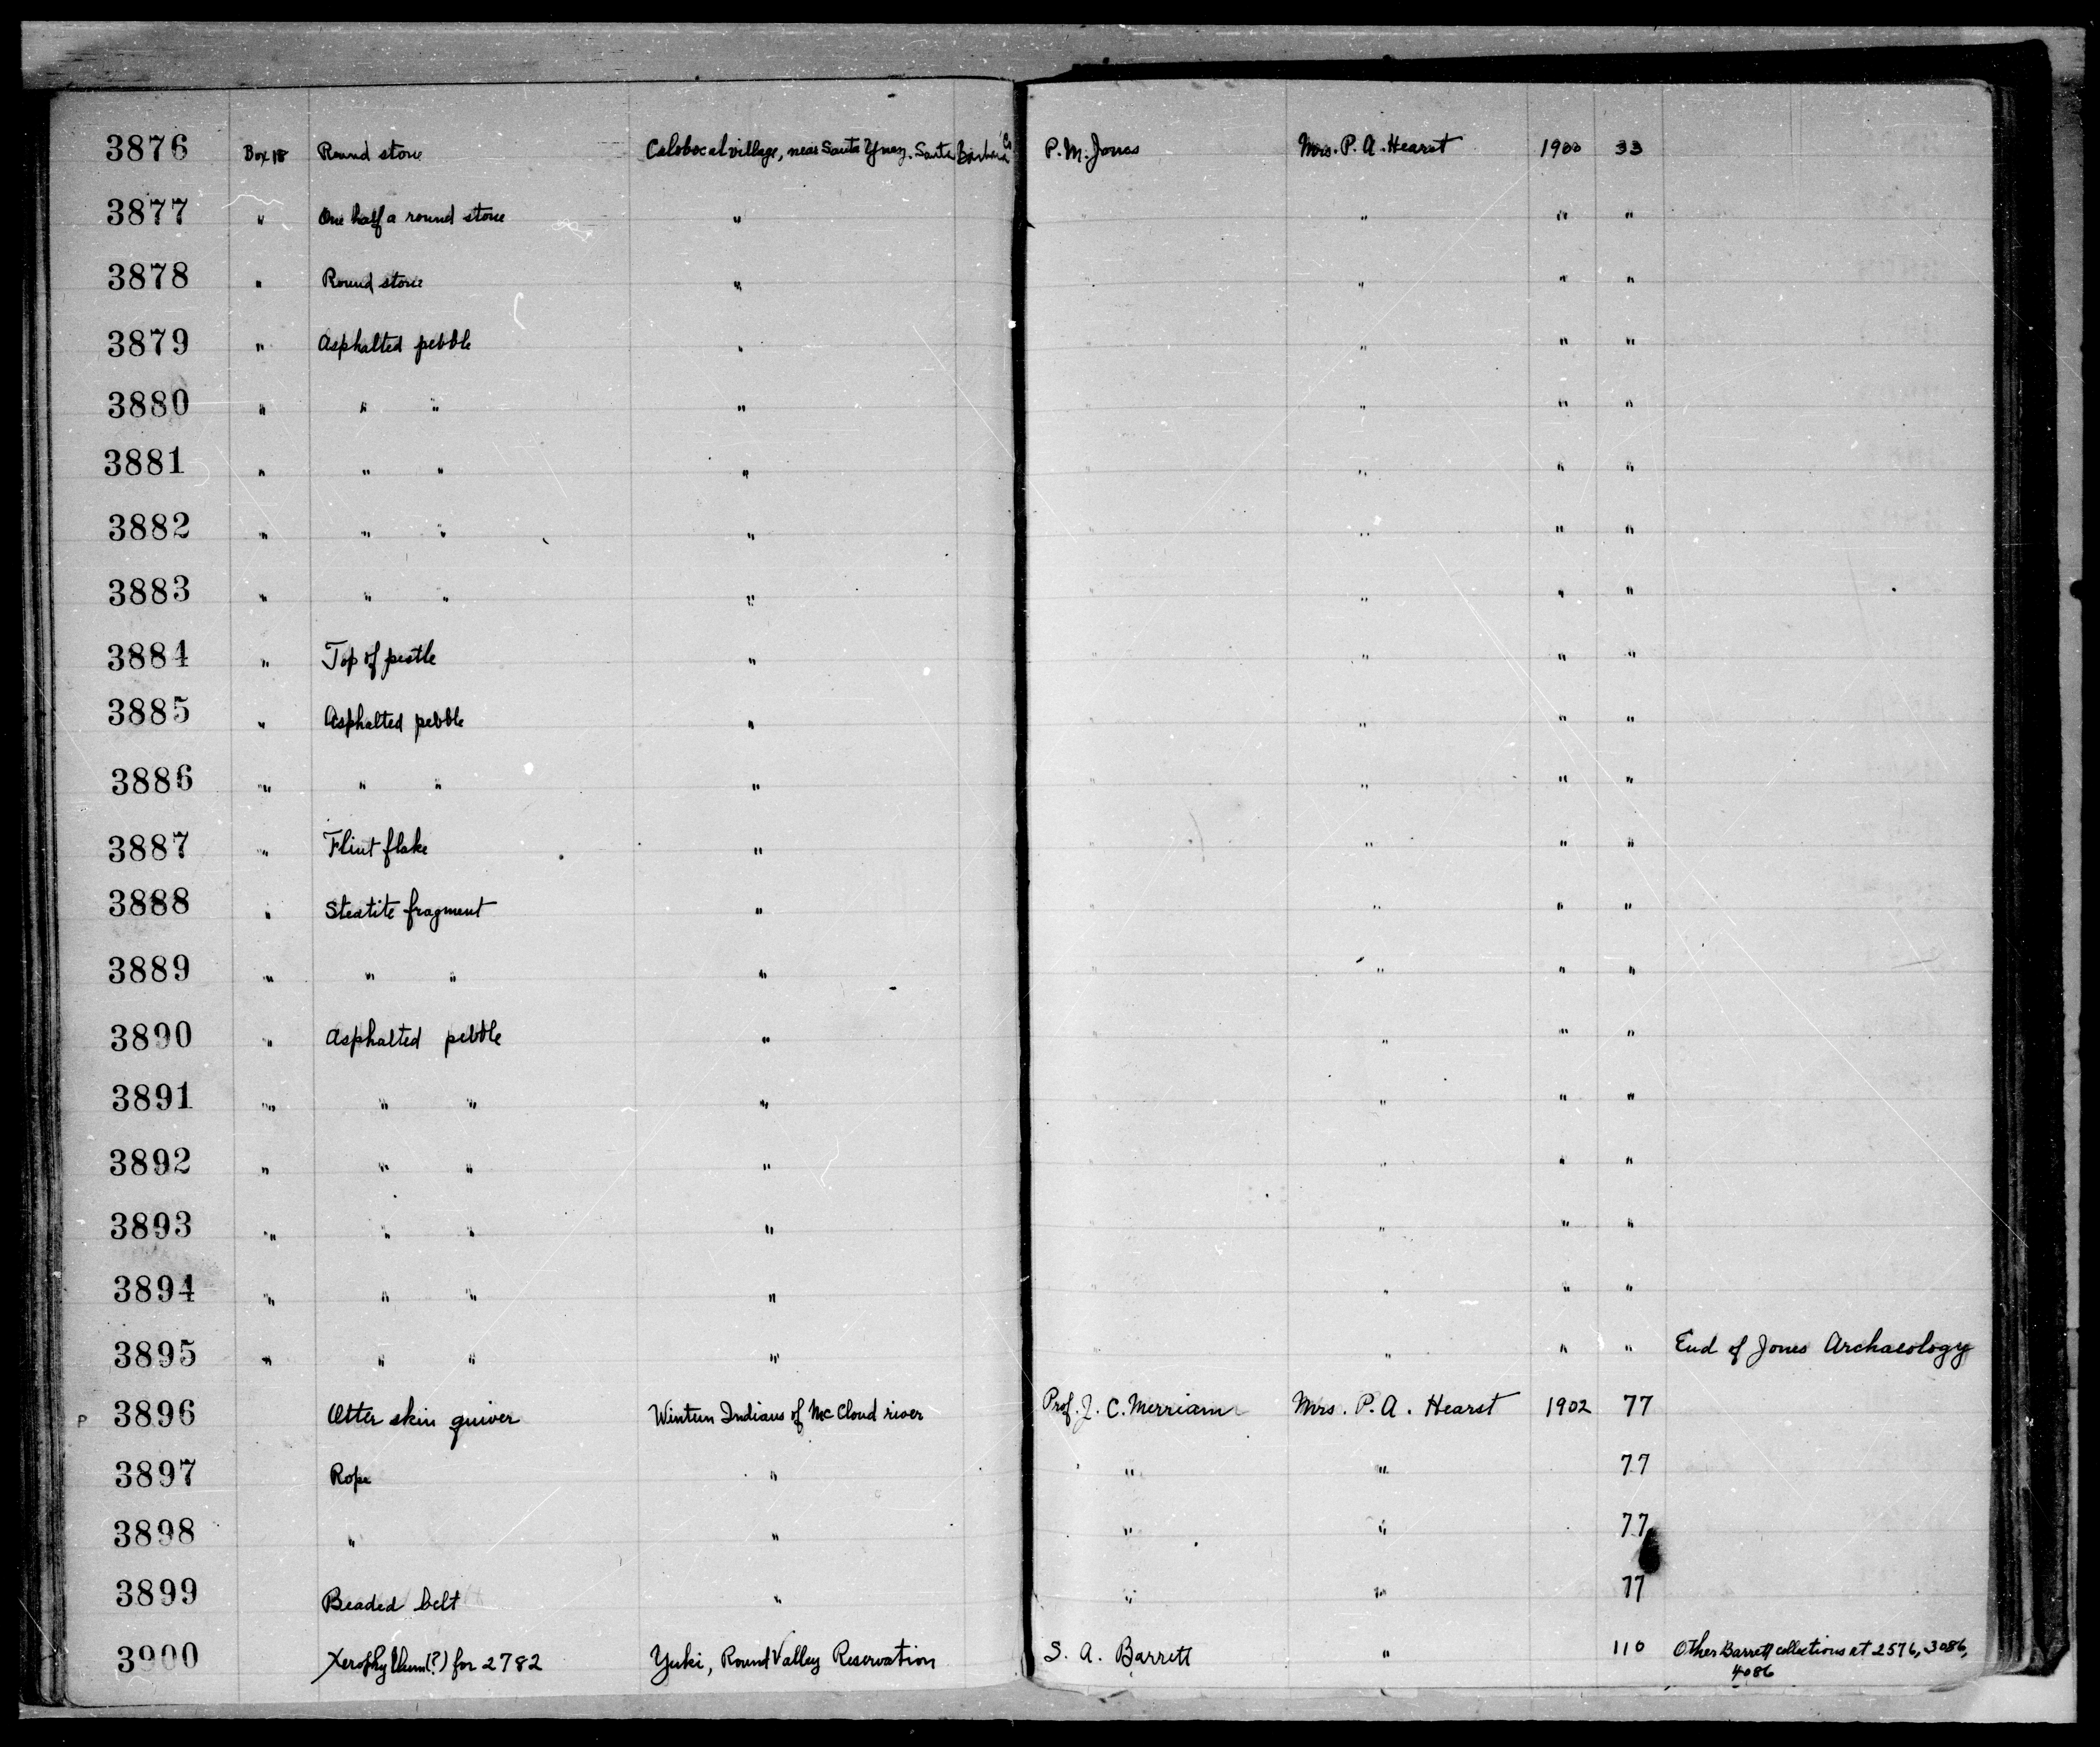 3876 Box 18 Round stone Calabocal village, near Santa Ynez. Santa Barbara Co P. M. Jones Mrs. P. A. Hearst 1900 33
3877 " One half a round stone " " " " "
3878 " Round stone " " " " "
3879 " Asphalted pebble " " " " "
3880 " " " " " " " "
3881 " " " " " " " "
3882 " " " " " " " "
3883 " " " " " " " "
3884 " Top of pestle " " " " "
3885 " Asphalted pebble " " " " "
3886 " " " " " " " "
3887 " Flint flake " " " " "
3888 " Steatite fragment " " " " "
3889 " " " " " " " "
3890 " Asphalted pebble " " " " "
3891 " " " " " " " "
3892 " " " " " " " "
3893 " " " " " " " "
3894 " " " " " " " "
3895 " " " " " " " " End of Jones Archaeology
P 3896 Otter skin quiver Wintun Indians of McCloud river Prof. J. C. Merriam Mrs. P. A. Hearst 1902 77
3897 Rope " " " 77
3898 " " " " 77
3899 Beaded belt " " " 77
3900 Xerophyllum(?) for 2782 Yuki, Round Valley Reservation S. A. Barrett " 110 Other Barrett collections at 2576, 3086,
4086